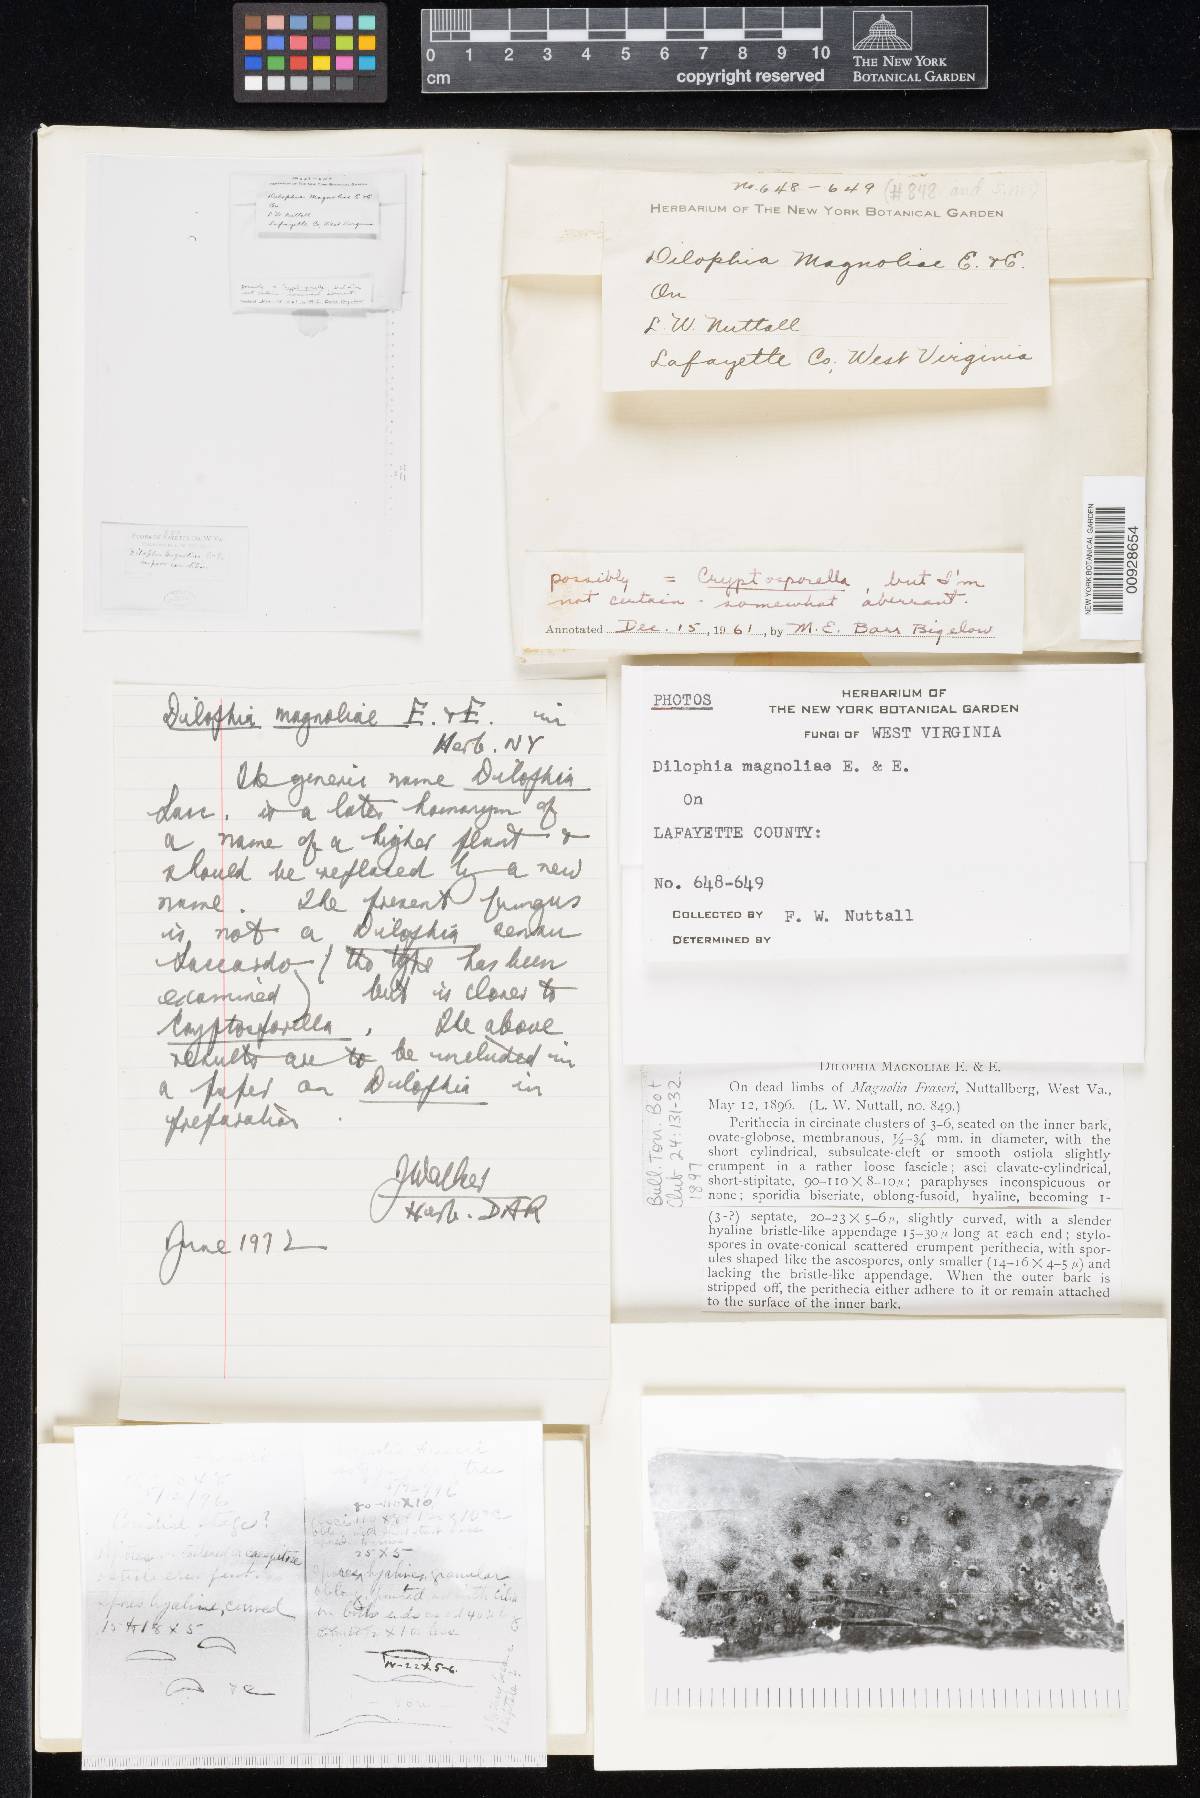 0 1 2 3 4 5 6 7 8 9 10
cm
copyright reserved
THE NEW YORK
BOTANICAL GARDEN
No. 648-649 (#848 and
HERBARIUM OF THE NEW YORK BOTANICAL GARDEN
Dilophia Magnoliae E. & E.
On
L. W. Nuttall
Lafayette Co, West Virginia
Dilophia Magnoliae E & E
On
L W Nuttall
Lafayette Co, West Virginia
NEW YORK BOTANICAL GARDEN
00928654
possibly = Cryptosporella, but I'm
not certain - somewhat aberrant.
Annotated Dec. 15, 1961, by M. E. Barr Bigelow
PHOTOS
HERBARIUM OF
THE NEW YORK BOTANICAL GARDEN
FUNGI OF WEST VIRGINIA
Dilophia magnoliae E. & E.
On
LAFAYETTE COUNTY:
No. 648-649
COLLECTED BY F. W. Nuttall
DETERMINED BY
Dilophia magnoliae E. & E. in
Herb. NY
The generic name Dilophia
Sacc. is a later homonym of
a name of a higher plant &
should be replaced by a new
name. The present fungus
is not a Dilophia sensu
Saccardo (the type has been
examined) but is closer to
Cryptosporella. The above
results are to be included in
a paper on Dilophia in
preparation.
J Walker
Herb. DAR
June 1972
Bull. Torr. Bot
Club 24:131-32.
1897
DILOPHIA MAGNOLIAE E. & E.
On dead limbs of Magnolia Fraseri, Nuttallberg, West Va.,
May 12, 1896. (L. W. Nuttall, no. 849.)
Perithecia in circinate clusters of 3-6, seated on the inner bark,
ovate-globose, membranous, ½-¾ mm. in diameter, with the
short cylindrical, subsulcate-cleft or smooth ostiola slightly
erumpent in a rather loose fascicle; asci clavate-cylindrical,
short-stipitate, 90-110 × 8-10 µ; paraphyses inconspicuous or
none; sporidia biseriate, oblong-fusoid, hyaline, becoming 1-
(3-?) septate, 20-23 × 5-6 µ, slightly curved, with a slender
hyaline bristle-like appendage 15-30 µ long at each end; stylo-
spores in ovate-conical scattered erumpent perithecia, with spor-
ules shaped like the ascospores, only smaller (14-16 × 4-5 µ) and
lacking the bristle-like appendage. When the outer bark is
stripped off, the perithecia either adhere to it or remain attached
to the surface of the inner bark.
5/12/96
Conidial stage?
Spores hyaline, curved
15 to 18 × 5
80-110 × 10
25 × 5
spores hyaline, granular
on both ends
18-22 × 5-6.